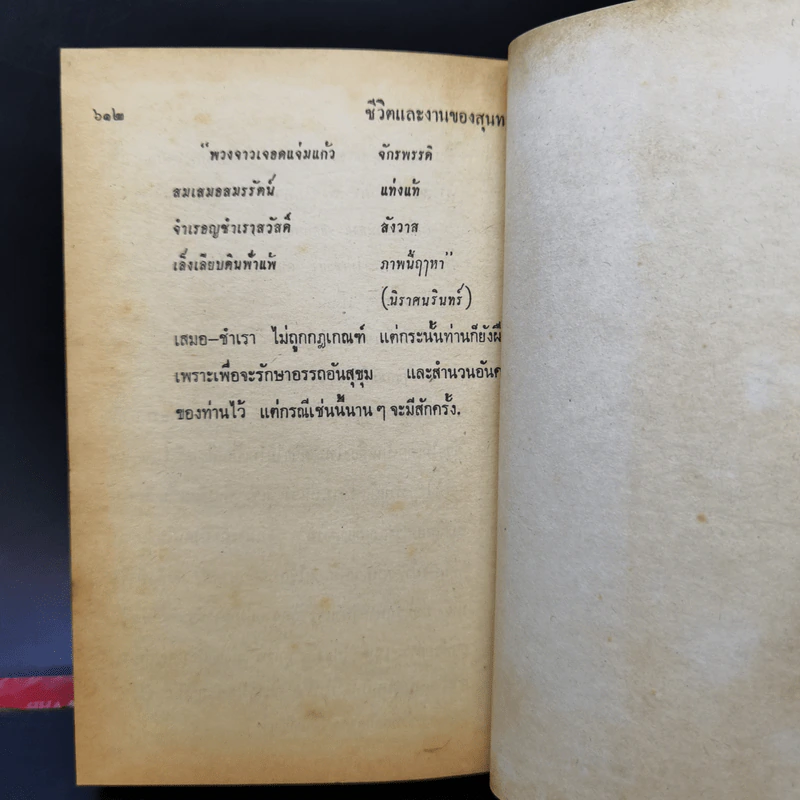 ๖๑๒ ชีวิตและงานของสุนท
"พวงจาวเจอดแจ่มแก้ว จักรพรรดิ
สมเสมอสมรรัตน์ แท่งแท้
จำเรอญชำเราสวัสดิ์ สังวาส
เล็งเลียบดินฟ้าแพ้ ภาพนี้ฤๅหา"
(นิราศนรินทร์)
เสมอ-ชำเรา ไม่ถูกกฎเกณฑ์ แต่กระนั้นท่านก็ยังฝื
เพราะเพื่อจะรักษาอรรถอันสุขุม และสำนวนอันค
ของท่านไว้ แต่กรณีเช่นนี้นาน ๆ จะมีสักครั้ง.